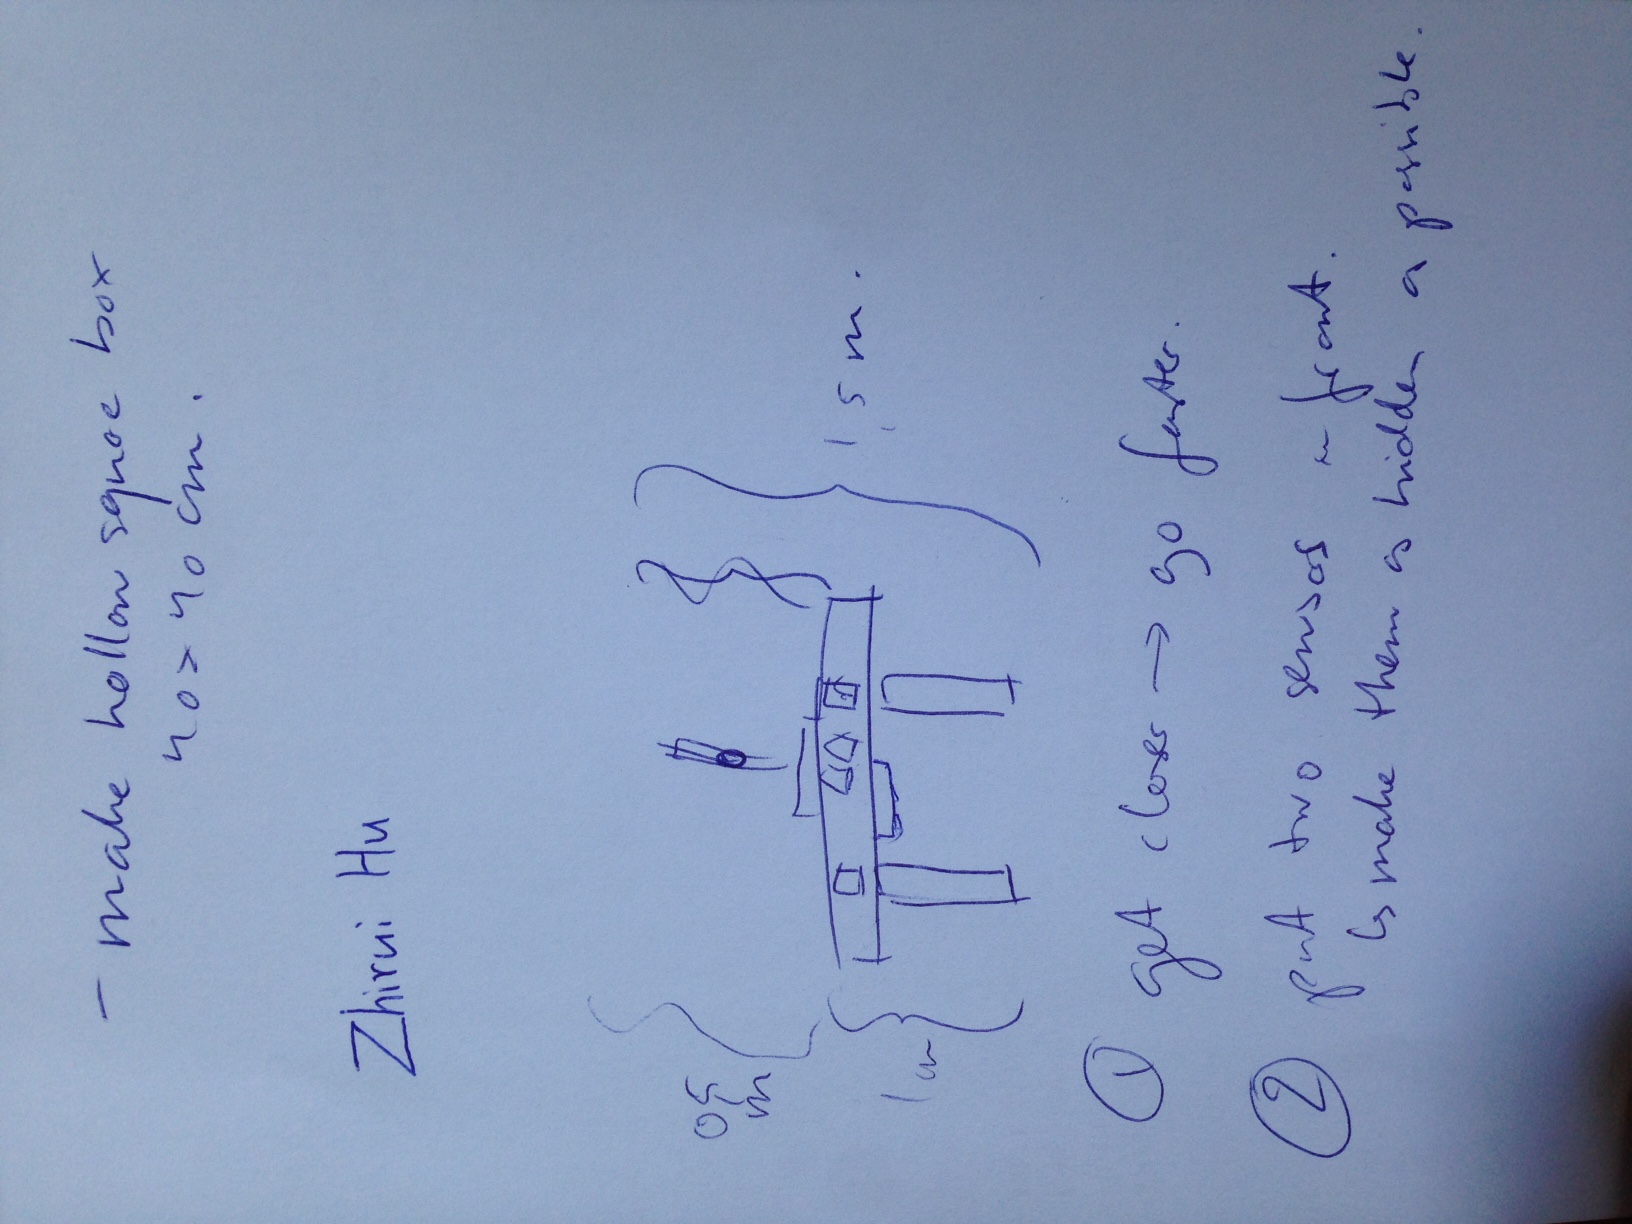 - make hollow square box
40 x 40 cm.
Zhirui Hu
0,5
m
1 m
1,5 m.
① get closer → go faster.
② put two sensors in front.
↳ make them as hidden as possible.